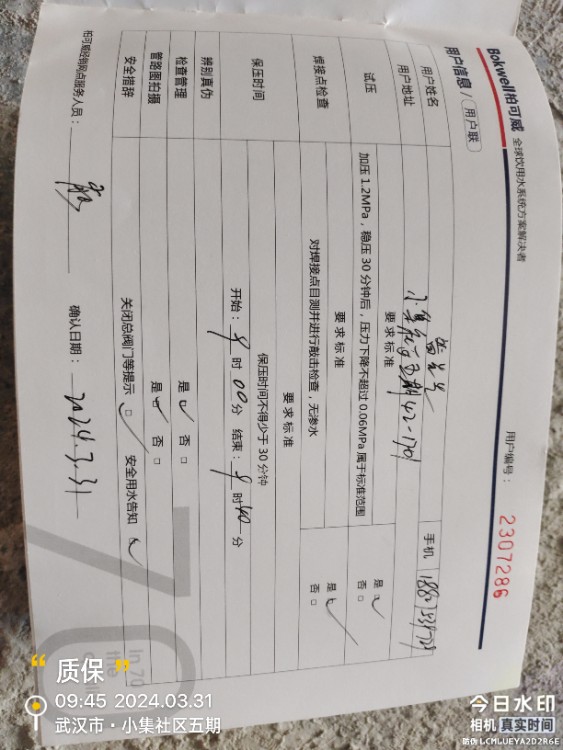 Bokwell柏可威 全球饮用水系统方案解决者
用户编号： 2307286
用户信息 / 用户联
用户姓名
手机
用户地址
要求标准
试压
加压 1.2MPa，稳压 30 分钟后，压力下降不超过 0.06MPa 属于标准范围
是 否
要求标准
焊接点检查
对焊接点目测并进行敲击检查，无渗水
是 否
要求标准
保压时间
保压时间不得少于 30 分钟
开始： 时 00 分 结束： 时 40 分
辨别真伪
是 否
检查管理
管路图拍摄
是 否
安全措辞
关闭总阀门等提示 安全用水告知
柏可威经销网点服务人员：
确认日期： 2024.3.31
In 70
the
“质保”
09:45 2024.03.31
武汉市·小集社区五期
今日水印
相机 真实时间
防伪 LCMLUEYA2D2R6E